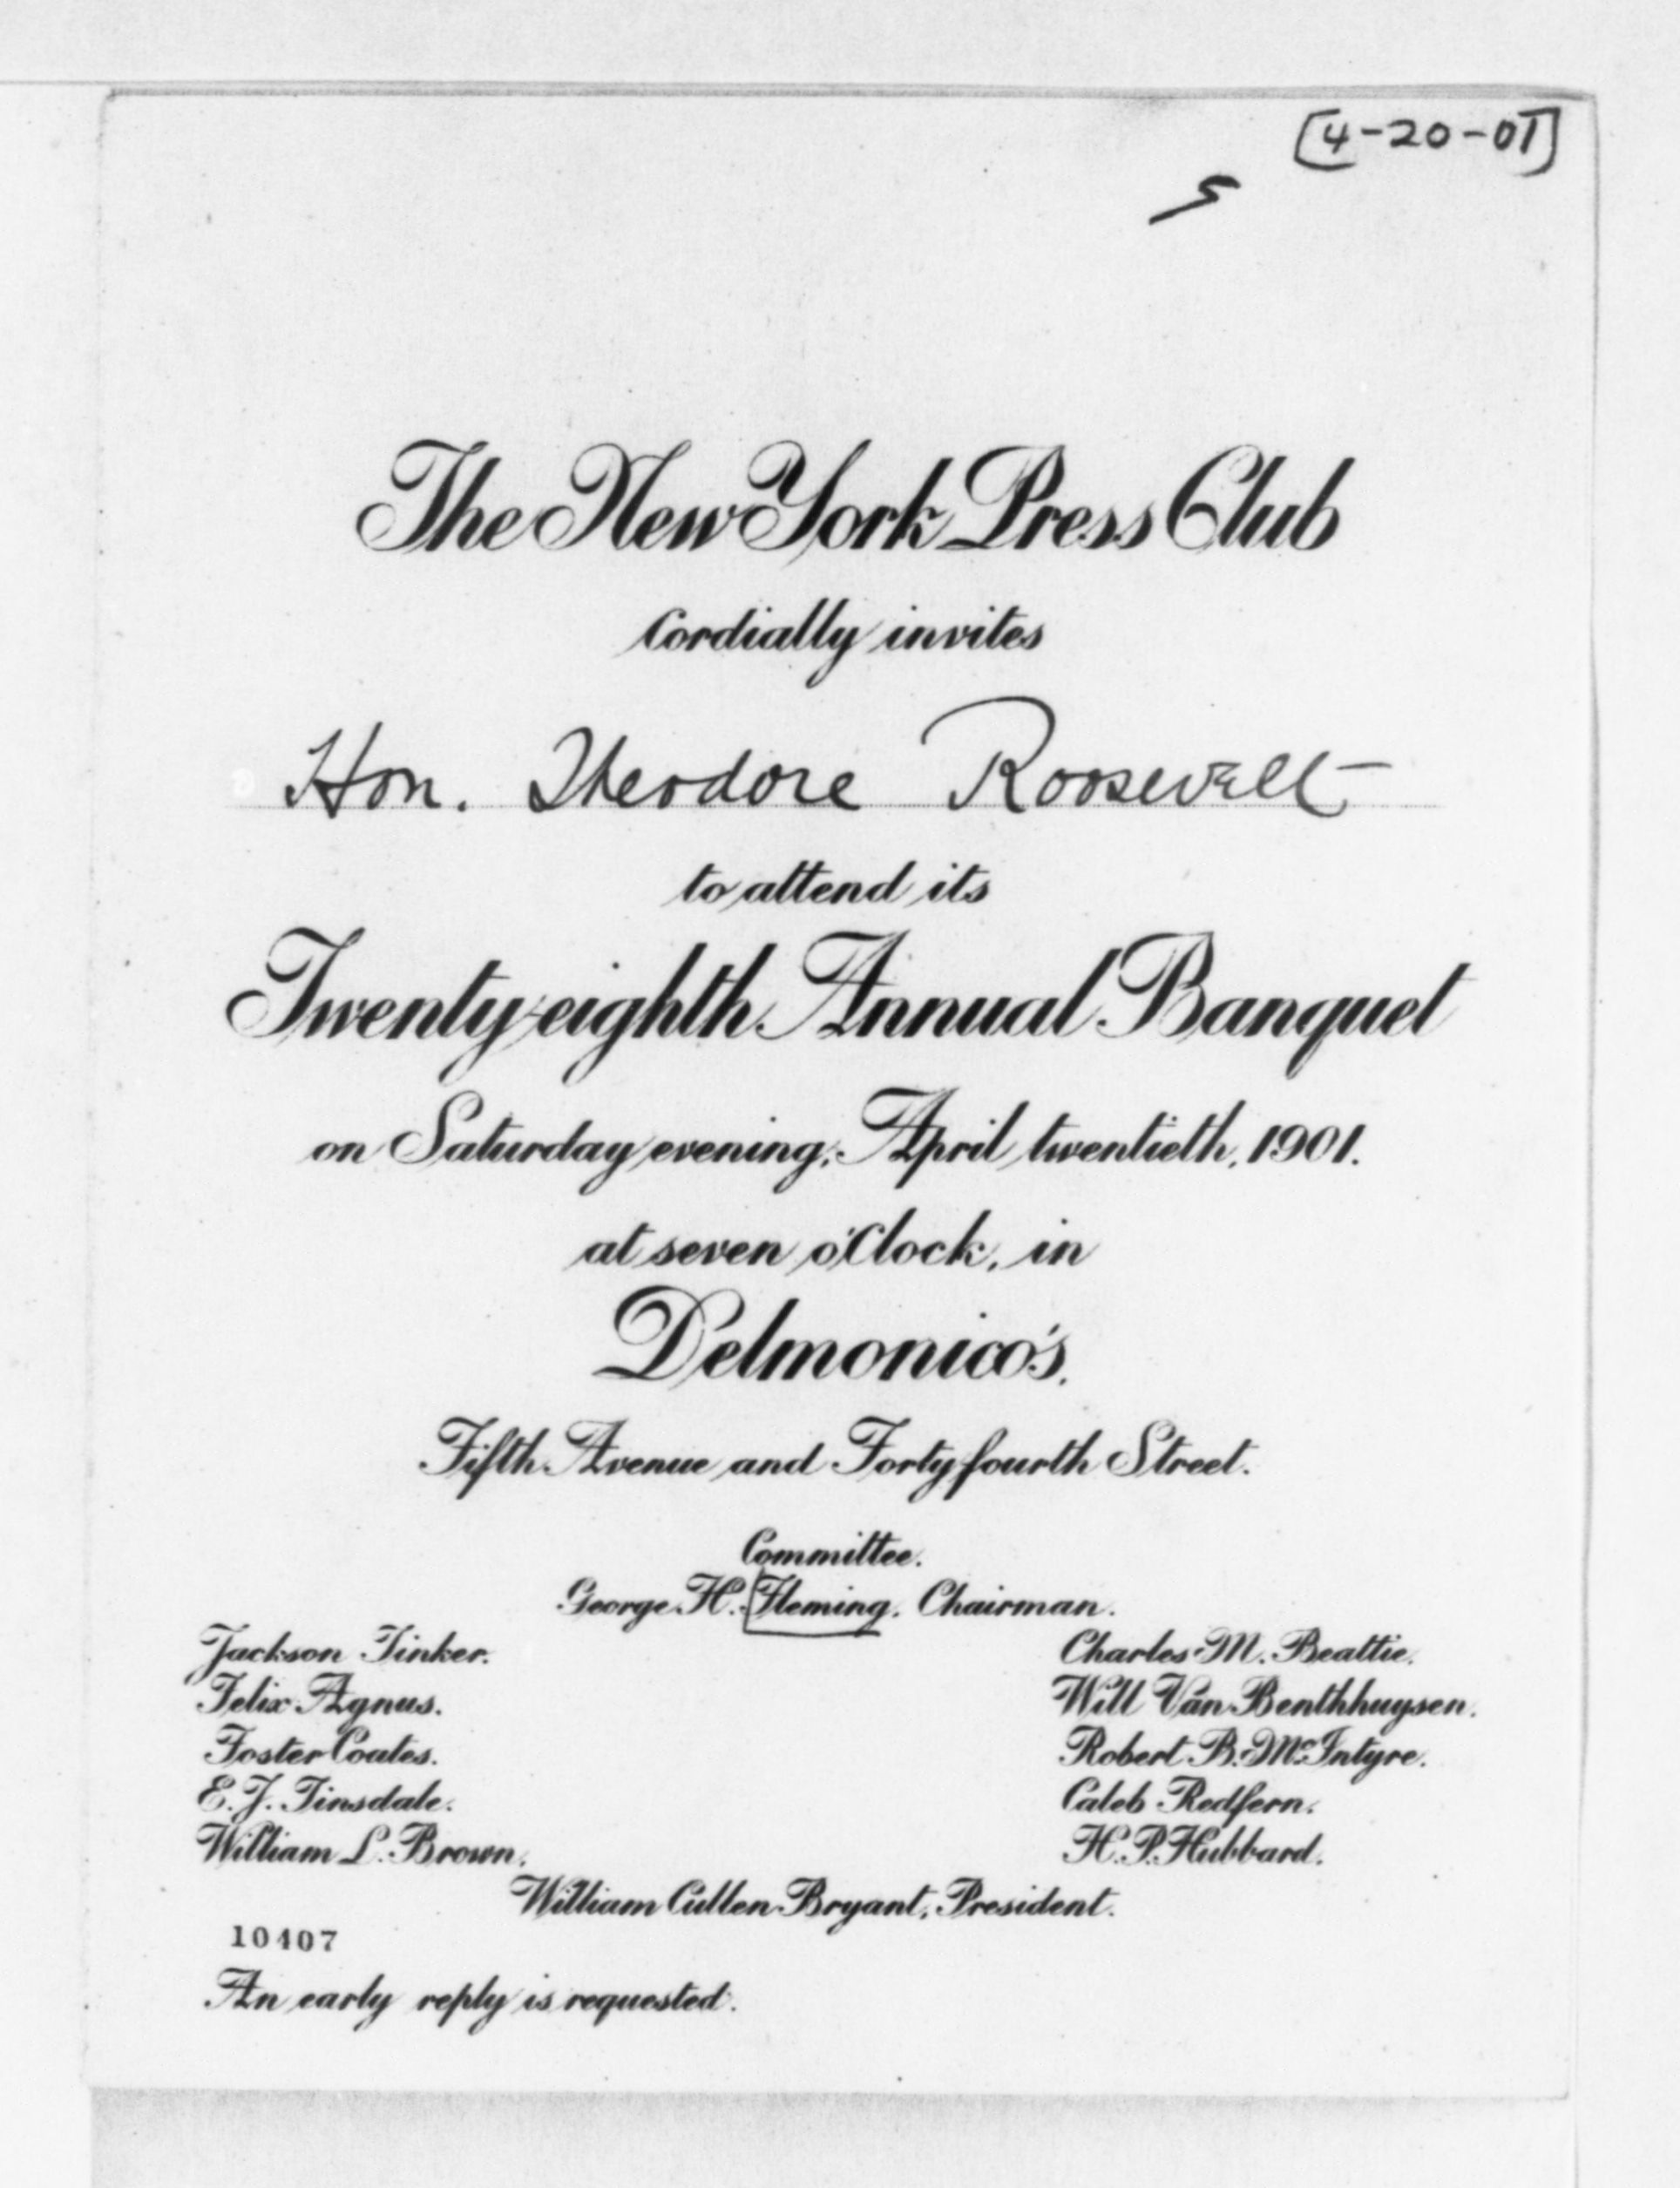 [4-20-01]
The New York Press Club
Cordially invites
Hon. Theodore Roosevelt
to attend its
Twenty-eighth Annual Banquet
on Saturday evening, April twentieth, 1901.
at seven o'Clock, in
Delmonico's,
Fifth Avenue and Forty fourth Street.
Committee.
George H. Fleming, Chairman.
Jackson Tinker.
Charles M. Beattie.
Felix Agnus.
Will Van Benthhuysen.
Foster Coates.
Robert B. McIntyre.
E. J. Tinsdale.
Caleb Redfern.
William L. Brown.
H. P. Hubbard.
William Cullen Bryant, President.
10407
An early reply is requested.